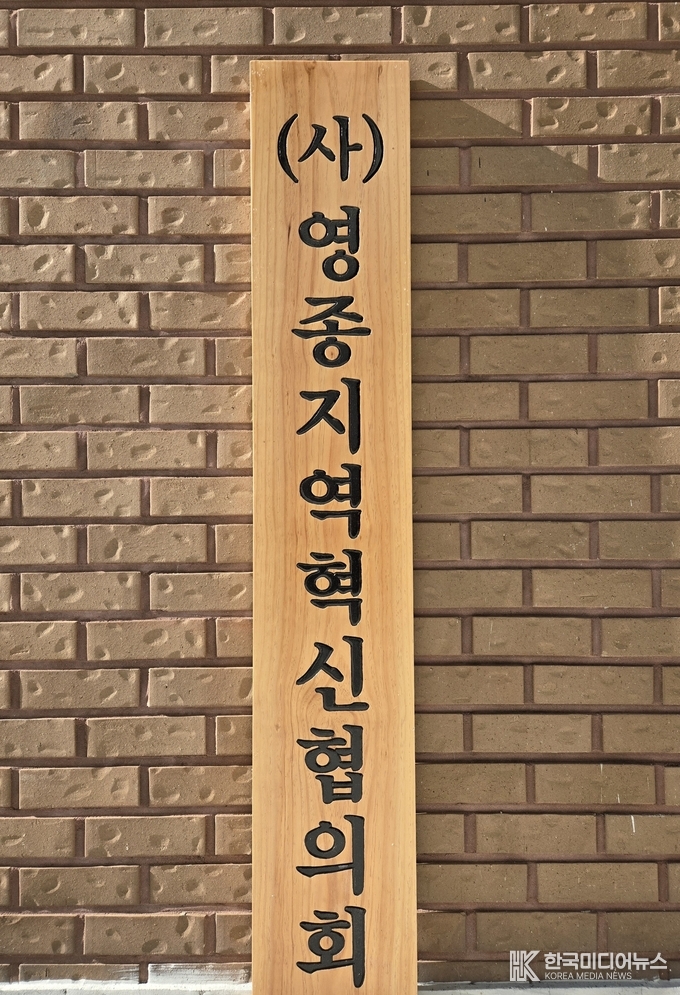 (사)영종지역혁신협의회
HK 한국미디어뉴스
KOREA MEDIA NEWS